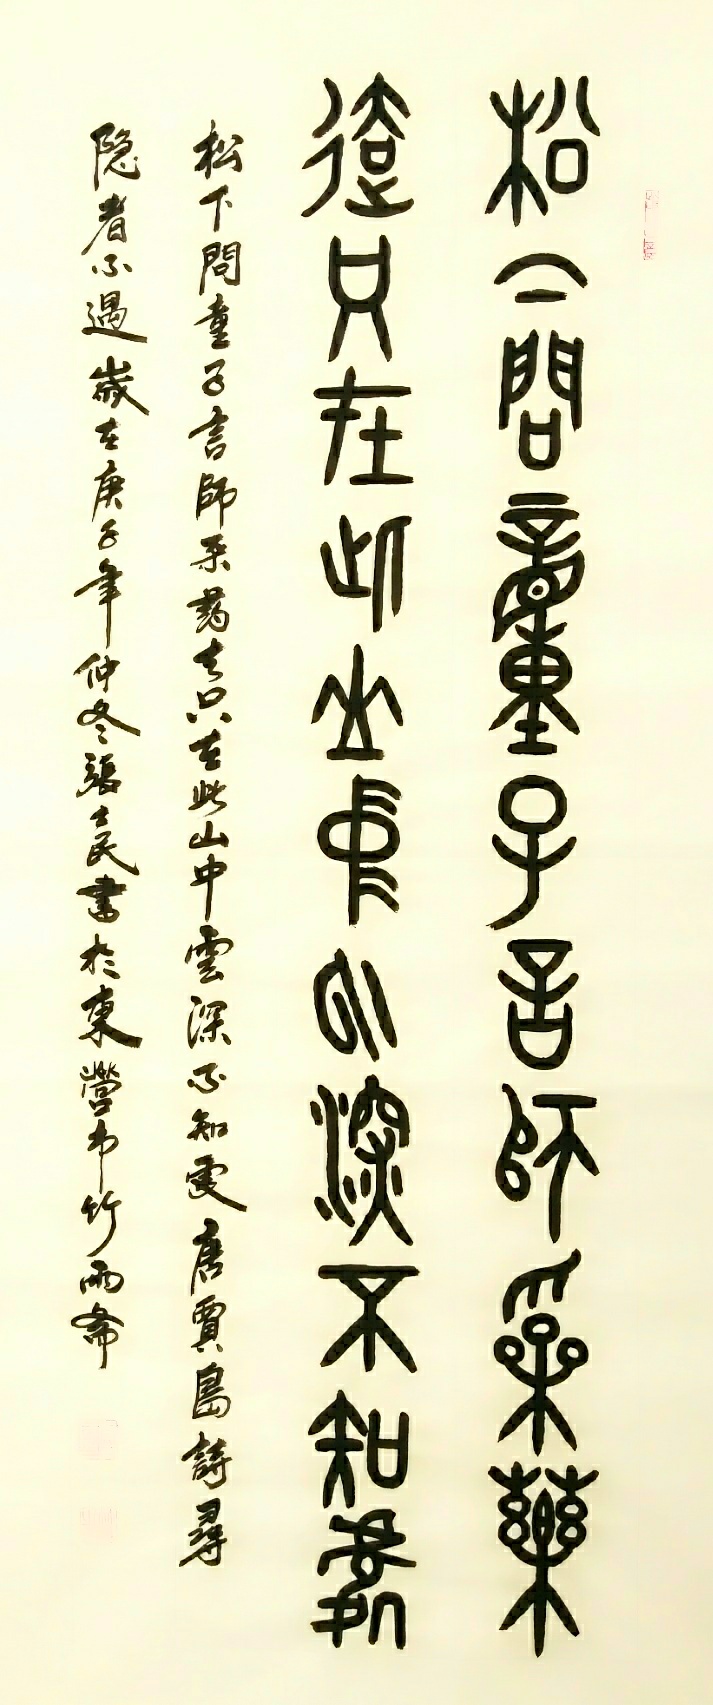 松下問童子言師采藥
去只在此山中云深不知處
松下問童子言師采药去只在此山中雲深不知處唐賈島詩尋
隐者不遇歲在庚子年仲冬張士民書於東營市竹雨齋